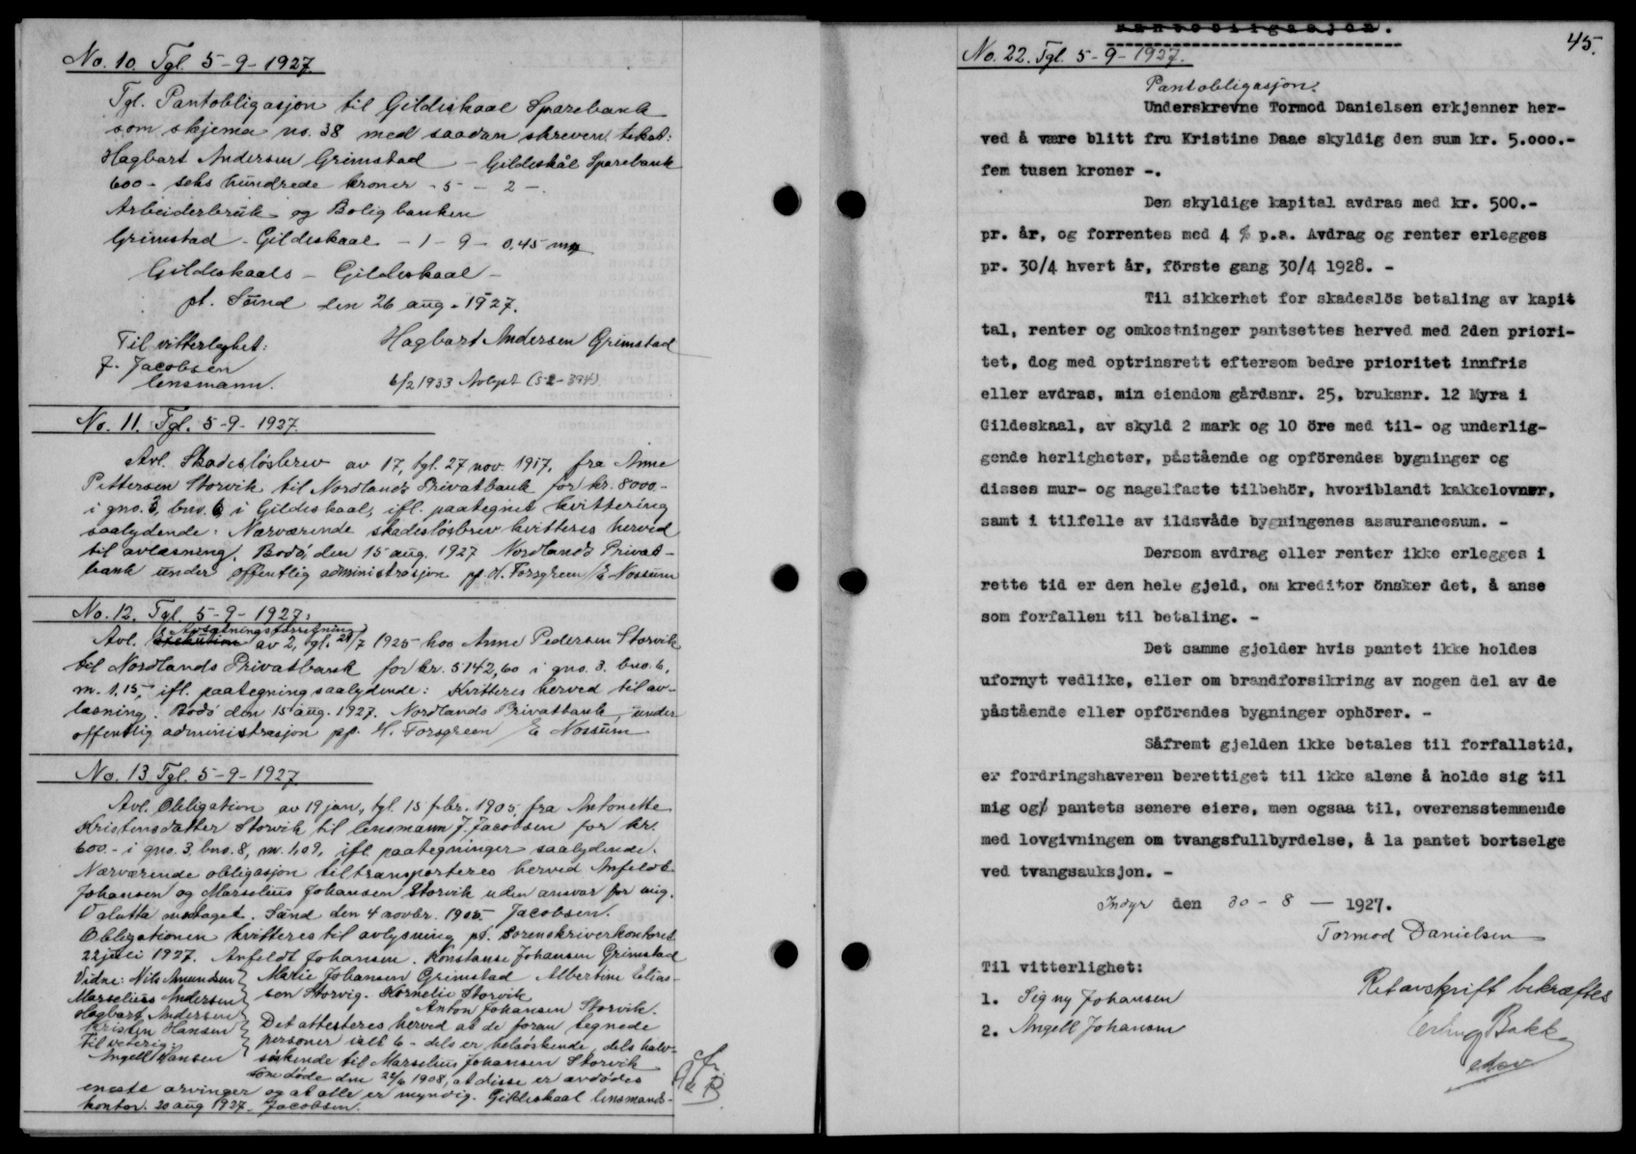 No. 10. Tgl. 5-9-1927.
Tgl. Pantobligasjon til Gildeskaal Sparebank
som skjema no. 38 med saadan skreven tekst:
Hagbart Andersen Grimstad - Gildeskål Sparebank
600 - seks hundrede kroner - 5 - 2 -.
Arbeiderbruk og Bolig banken
Grimstad - Gildeskaal - 1 - 9 - 0,45 mrk
Gildeskaals - Gildeskaal -
pt. Sund den 26 aug. 1927.
Til vitterlighet: Hagbart Andersen Grimstad
J. Jacobsen
lensmann. 6/2 1933 Avlyst (52-394)
No. 11. Tgl. 5-9-1927.
Avl. Skadesløsbrev av 17, tgl. 27 nov. 1917, fra Anne
Pettersen Storvik til Nordlands Privatbank for kr. 8000.-
i gno. 3, bno. 6 i Gildeskaal, ifl. paategnet kvittering
saalydende: Nærværende skadesløsbrev kvitteres herved
til avlæsning. Bodø, den 15 aug. 1927 Nordlands Privat-
bank under offentlig administrasjon pp. H. Forsgreen / E Nossum
No. 12. Tgl. 5-9-1927.
Utsætningsforretning
Avl. av 2, tgl. 28/7 1925 hos Anne Pedersen Storvik
til Nordlands Privatbank for kr. 5142,60 i gno. 3. bno. 6.
m. 1,15, ifl. paategning saalydende: Kvitteres herved til av-
læsning. Bodø den 15 aug. 1927. Nordlands Privatbank, under
offentlig administrasjon pp. H. Forsgreen / E Nossum
No. 13 Tgl. 5-9-1927.
Avl. Obligation av 19 jan., tgl. 15 febr. 1905, fra Antonette
Kristensdatter Storvik til lensmann J. Jacobsen for kr.
600.- i gno. 3, bno. 8, m. 1,09, ifl. paategninger saalydende:
Nærværende obligasjon til transporteres herved Anfeldt
Johansen og Marselius Johansen Storvik uden ansvar for mig.
Valutta mottaget. Sund den 4 novbr. 1905. Jacobsen.
Obligationen kvitteres til avlysning pt. Sorenskriverkontoret
22 juli 1927. Anfeldt Johansen. Konstanse Johansen Grimstad
Vidne: Nils Amundsen Marie Johansen Grimstad Albertine Elias-
Marselius Andersen sen Storvig. Kornelie Storvik
Hagbart Andersen Anton Johansen Storvik.
Kristen Hansen Det attesteres herved at de foran tegnede
Til vitterig: personer ialt 6 - dels er helsøskende, dels halv-
Angell Hansen søskende til Marselius Johansen Storvik
som døde den 22/6 1908, at disse er avdødes
eneste arvinger og at alle er myndig. Gildeskaal lensmands-
kontor. 20 aug 1927. Jacobsen.
45.
Pantobligasjon.
No. 22. Tgl. 5-9-1927.
Pantobligasjon.
Underskrevne Tormod Danielsen erkjenner her-
ved å være blitt fru Kristine Daae skyldig den sum kr. 5.000.-
fem tusen kroner -.
Den skyldige kapital avdras med kr. 500.-
pr. år, og forrentes med 4 % p.a. Avdrag og renter erlegges
pr. 30/4 hvert år, förste gang 30/4 1928. -
Til sikkerhet for skadeslös betaling av kapit
tal, renter og omkostninger pantsettes herved med 2den priori-
tet, dog med optrinsrett eftersom bedre prioritet innfris
eller avdras, min eiendom gårdsnr. 25, bruksnr. 12 Myra i
Gildeskaal, av skyld 2 mark og 10 öre med til- og underlig-
gende herligheter, påstående og opförendes bygninger og
disses mur- og nagelfaste tilbehör, hvoriblandt kakkelovner,
samt i tilfelle av ildsvåde bygningenes assurancesum. -
Dersom avdrag eller renter ikke erlegges i
rette tid er den hele gjeld, om kreditor önsker det, å anse
som forfallen til betaling. -
Det samme gjelder hvis pantet ikke holdes
ufornyt vedlike, eller om brandforsikring av nogen del av de
påstående eller opförendes bygninger ophörer. -
Såfremt gjelden ikke betales til forfallstid,
er fordringshaveren berettiget til ikke alene å holde sig til
mig og pantets senere eiere, men ogsaa til, overensstemmende
med lovgivningen om tvangsfullbyrdelse, å la pantet bortselge
ved tvangsauksjon. -
Indyr den 30 - 8 - 1927.
Tormod Danielsen
Til vitterlighet:
1. Signy Johansen
2. Angell Johansen
Ret avskrift bekræftes
Erling Bakk